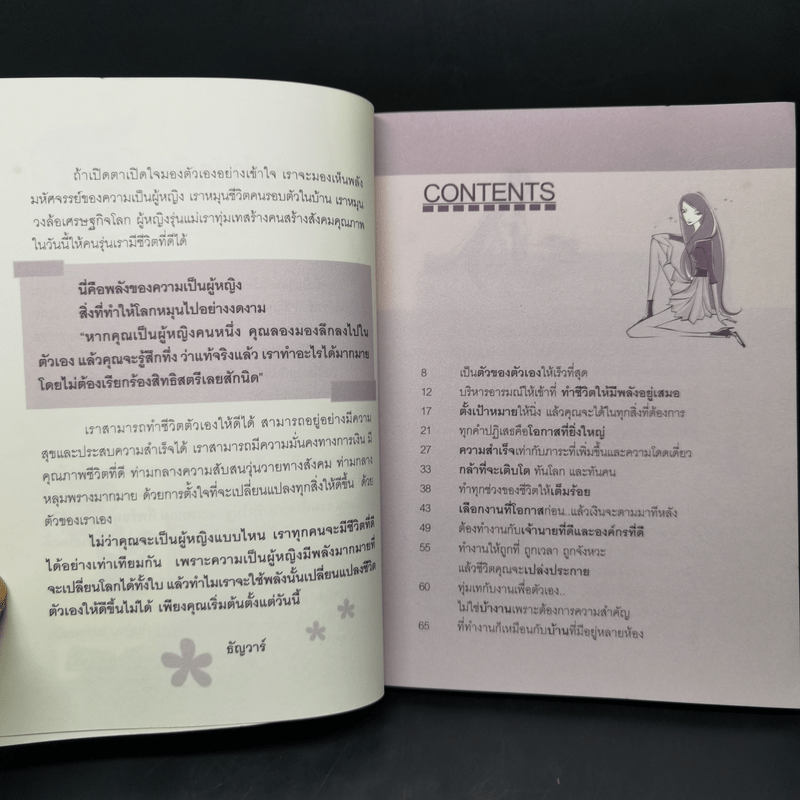 ถ้าเปิดตาเปิดใจมองตัวเองอย่างเข้าใจ เราจะมองเห็นพลัง
มหัศจรรย์ของความเป็นผู้หญิง เราหมุนชีวิตคนรอบตัวในบ้าน เราหมุน
วงล้อเศรษฐกิจโลก ผู้หญิงรุ่นแม่เราทุ่มเทสร้างคนสร้างสังคมคุณภาพ
ในวันนี้ให้คนรุ่นเรามีชีวิตที่ดีได้
นี่คือพลังของความเป็นผู้หญิง
สิ่งที่ทำให้โลกหมุนไปอย่างงดงาม
“หากคุณเป็นผู้หญิงคนหนึ่ง คุณลองมองลึกลงไปใน
ตัวเอง แล้วคุณจะรู้สึกทึ่ง ว่าแท้จริงแล้ว เราทำอะไรได้มากมาย
โดยไม่ต้องเรียกร้องสิทธิสตรีเลยสักนิด”
เราสามารถทำชีวิตตัวเองให้ดีได้ สามารถอยู่อย่างมีความ
สุขและประสบความสำเร็จได้ เราสามารถมีความมั่นคงทางการเงิน มี
คุณภาพชีวิตที่ดี ท่ามกลางความสับสนวุ่นวายทางสังคม ท่ามกลาง
หลุมพรางมากมาย ด้วยการตั้งใจที่จะเปลี่ยนแปลงทุกสิ่งให้ดีขึ้น ด้วย
ตัวของเราเอง
ไม่ว่าคุณจะเป็นผู้หญิงแบบไหน เราทุกคนจะมีชีวิตที่ดี
ได้อย่างเท่าเทียมกัน เพราะความเป็นผู้หญิงมีพลังมากมายที่
จะเปลี่ยนโลกได้ทั้งใบ แล้วทำไมเราจะใช้พลังนั้นเปลี่ยนแปลงชีวิต
ตัวเองให้ดีขึ้นไม่ได้ เพียงคุณเริ่มต้นตั้งแต่วันนี้
ธัญวาร์
CONTENTS
8 เป็นตัวของตัวเองให้เร็วที่สุด
12 บริหารอารมณ์ให้เข้าที่ ทำชีวิตให้มีพลังอยู่เสมอ
17 ตั้งเป้าหมายให้นิ่ง แล้วคุณจะได้ในทุกสิ่งที่ต้องการ
21 ทุกคำปฏิเสธคือโอกาสที่ยิ่งใหญ่
27 ความสำเร็จเท่ากับภาระที่เพิ่มขึ้นและความโดดเดี่ยว
33 กล้าที่จะเติบโต ทันโลก และทันคน
38 ทำทุกช่วงของชีวิตให้เต็มร้อย
43 เลือกงานที่โอกาสก่อน..แล้วเงินจะตามมาทีหลัง
49 ต้องทำงานกับเจ้านายที่ดีและองค์กรที่ดี
55 ทำงานให้ถูกที่ ถูกเวลา ถูกจังหวะ
แล้วชีวิตคุณจะเปล่งประกาย
60 ทุ่มเทกับงานเพื่อตัวเอง..
ไม่ใช่บ้างานเพราะต้องการความสำคัญ
65 ที่ทำงานก็เหมือนกับบ้านที่มีอยู่หลายห้อง